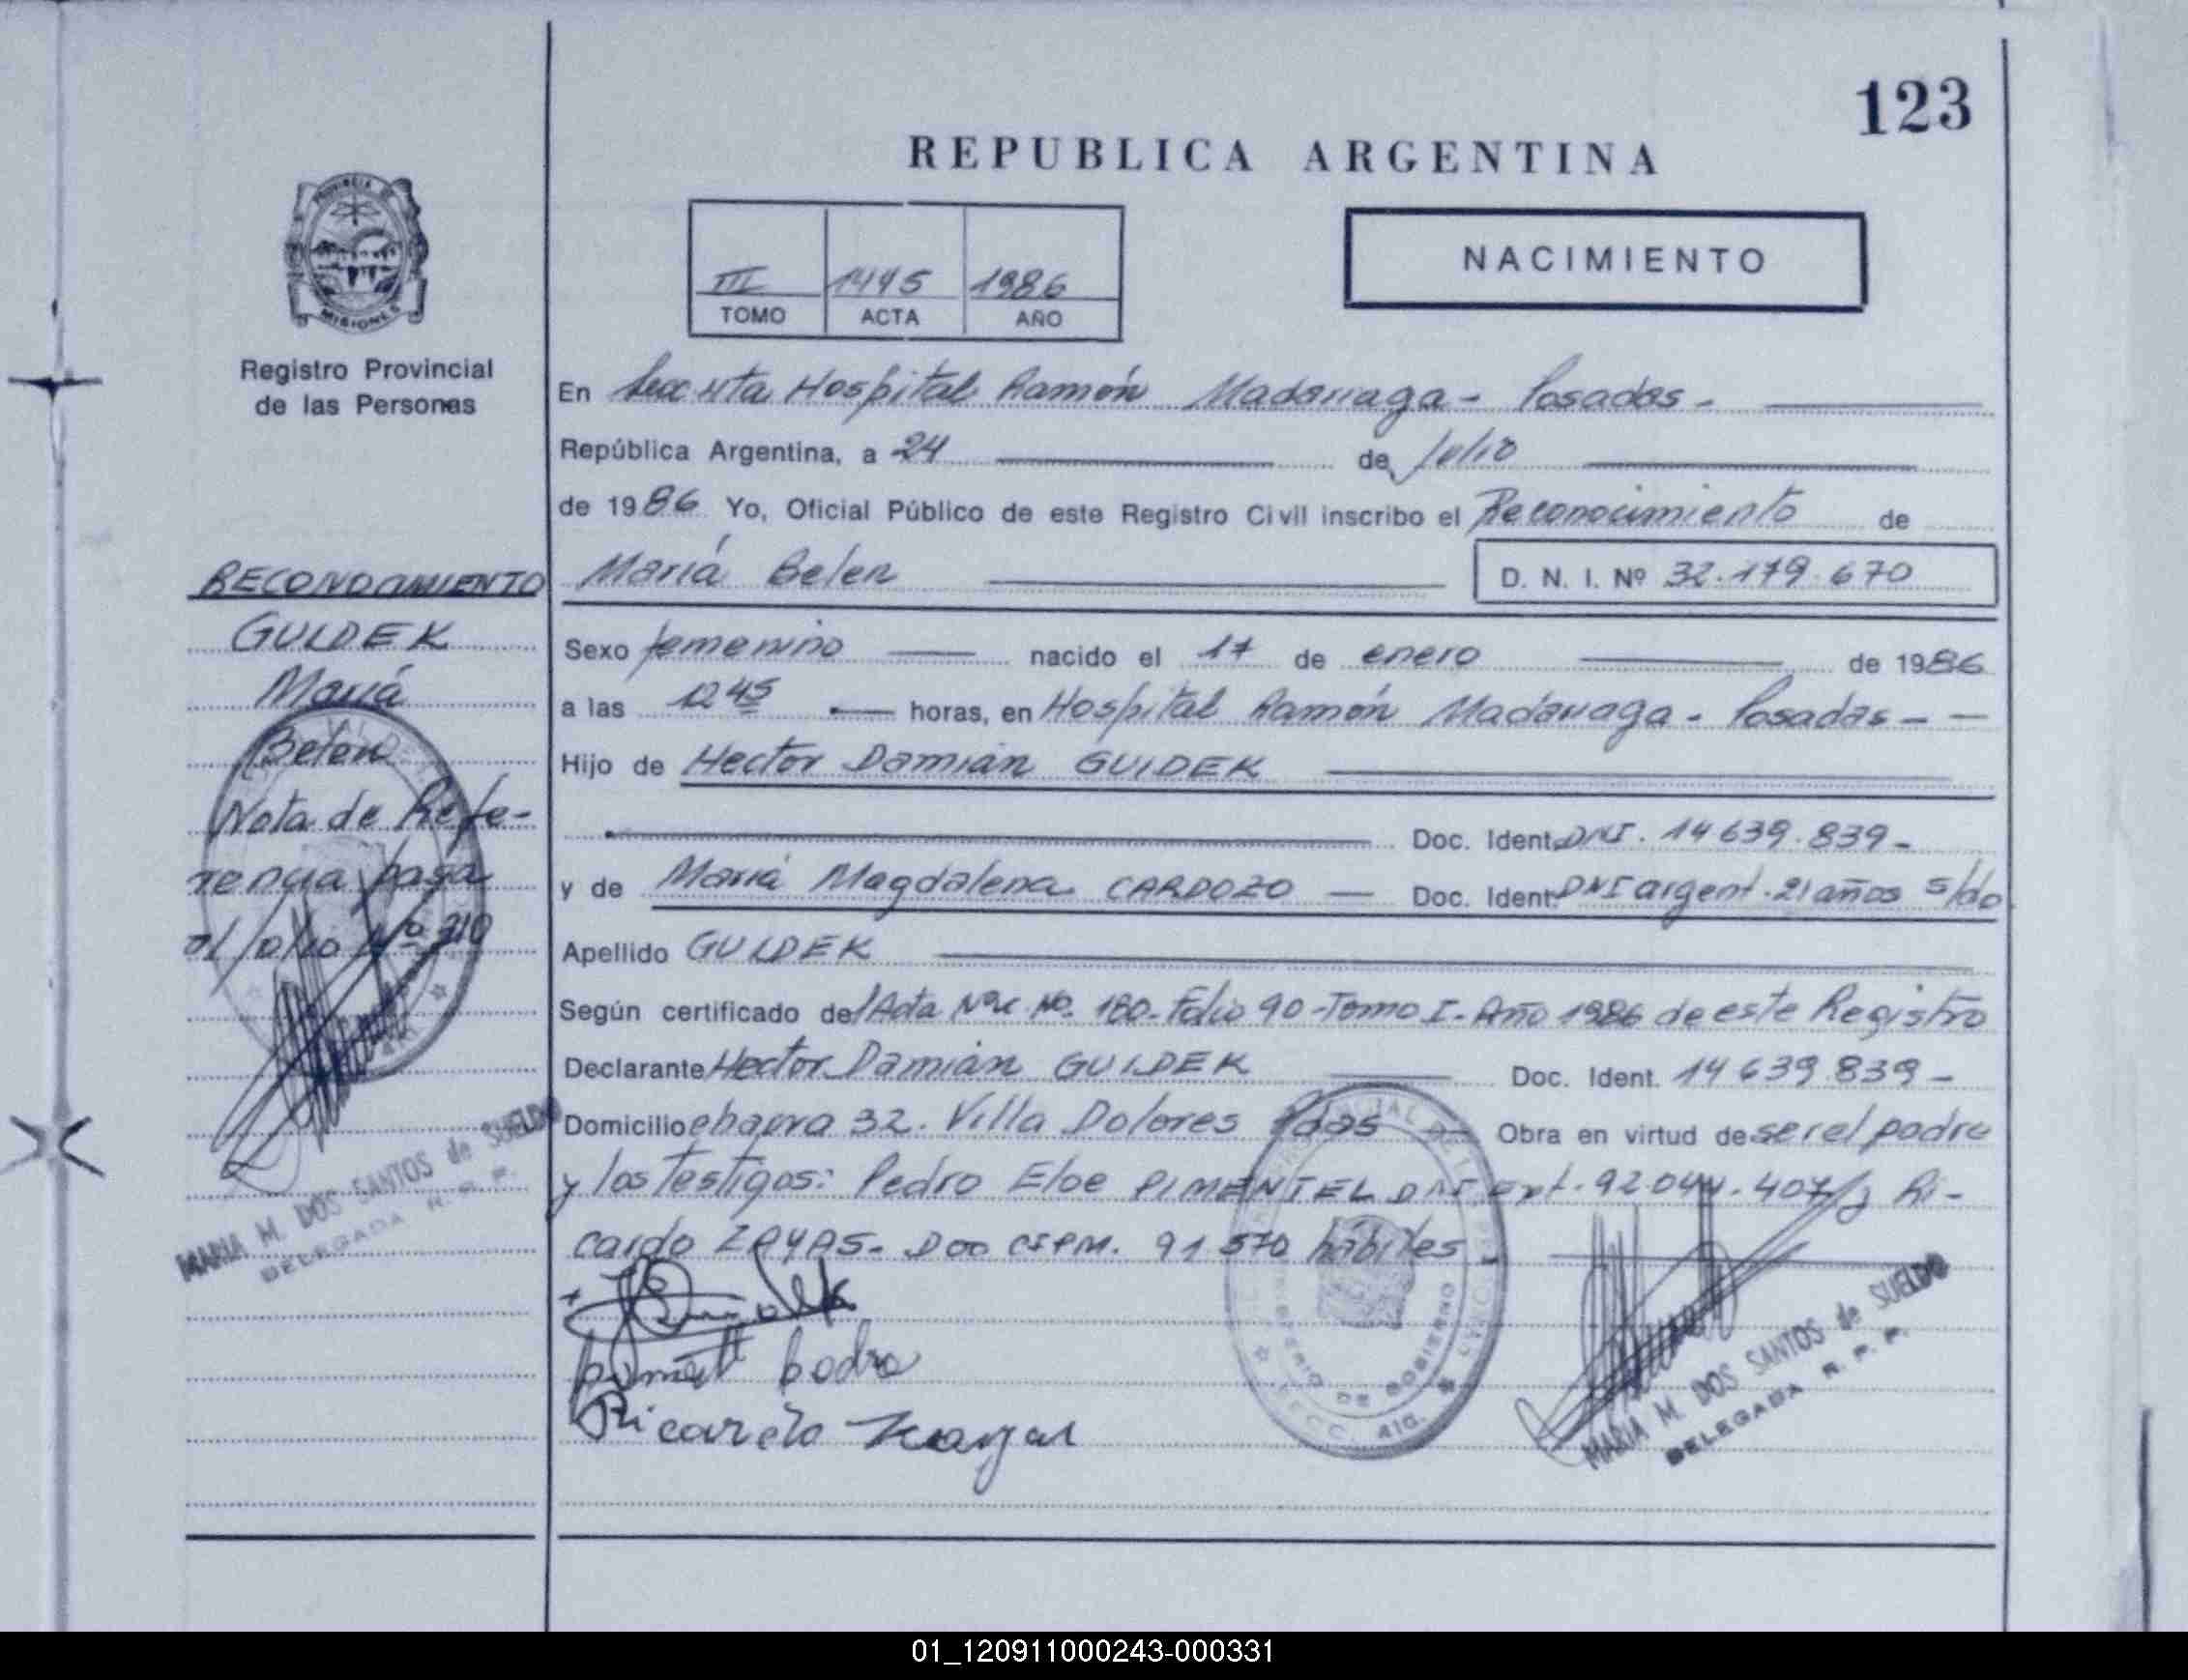 123
REPUBLICA ARGENTINA
III 1445 1986
TOMO ACTA AÑO
NACIMIENTO
PROVINCIA DE
MISIONES
Registro Provincial
de las Personas
RECONOCIMIENTO
GUIDEK
María
Belen
Nota de Refe-
rencia pasa
al folio Nº 210
MARIA M. DOS SANTOS de SUELDO
DELEGADA R. P. P.
En Hospital Ramón Madariaga - Posadas -
República Argentina, a 24 de Julio
de 1986 Yo, Oficial Público de este Registro Civil inscribo el Reconocimiento de
María Belen D. N. I. Nº 32.179.670
Sexo femenino nacido el 17 de enero de 1986
a las 12 45 horas, en Hospital Ramón Madariaga - Posadas - -
Hijo de Hector Damián GUIDEK
Doc. Ident. DNI. 14 639.839 -
y de María Magdalena CARDOZO - Doc. Ident. DNI argent. 21 años s/do
Apellido GUIDEK
Según certificado del Acta Nº 180 - Folio 90 - Tomo I - Año 1986 de este Registro
Declarante Hector Damián GUIDEK Doc. Ident. 14 639 839 -
Domicilio chacra 32. Villa Dolores Pdas - Obra en virtud de ser el padre
y los testigos: Pedro Eloe PIMENTEL DNI Ext. 92.044.407 y Ri-
cardo ZAYAS - Doc CIPM. 91 570 hábiles
Ricardo Zayas
MINISTERIO DE GOBIERNO
MARIA M. DOS SANTOS de SUELDO
DELEGADA R. P. P.
01_120911000243-000331